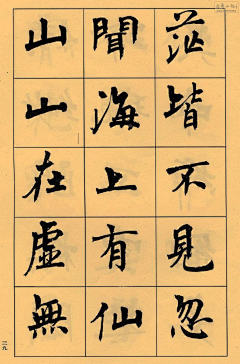 茫皆不見忽
聞海上有仙
山山在虛無
二九